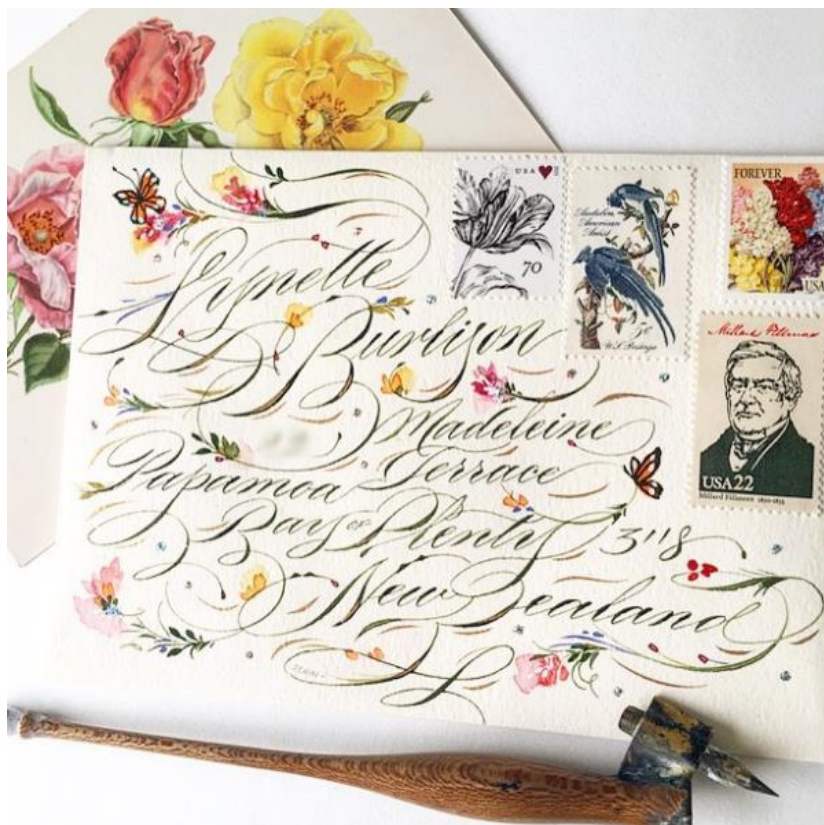 Lynette
Burlison
Madeleine
Terrace
Papamoa
Bay of Plenty 3118
New Zealand
USA
70
Audubon,
American
Artist
5¢
U.S. Postage
FOREVER
USA
Millard Fillmore
USA 22
Millard Fillmore 1850-1853